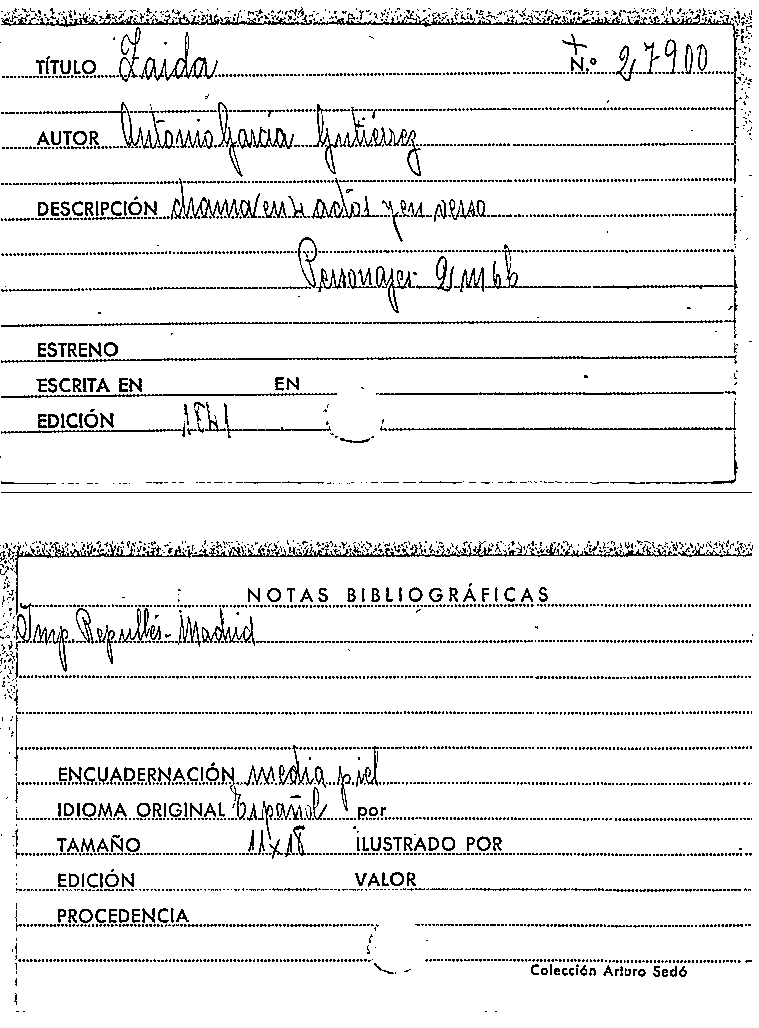 TÍTULO Zaida + N.º 27900
AUTOR Antonio García Gutiérrez
DESCRIPCIÓN drama en 4 actos y en verso
Personajes 2 m 6 h
ESTRENO
ESCRITA EN EN
EDICIÓN 1841
NOTAS BIBLIOGRÁFICAS
Imp. Repullés - Madrid
ENCUADERNACIÓN media piel
IDIOMA ORIGINAL Español por
TAMAÑO 11x18 ILUSTRADO POR
EDICIÓN VALOR
PROCEDENCIA
Colección Arturo Sedó